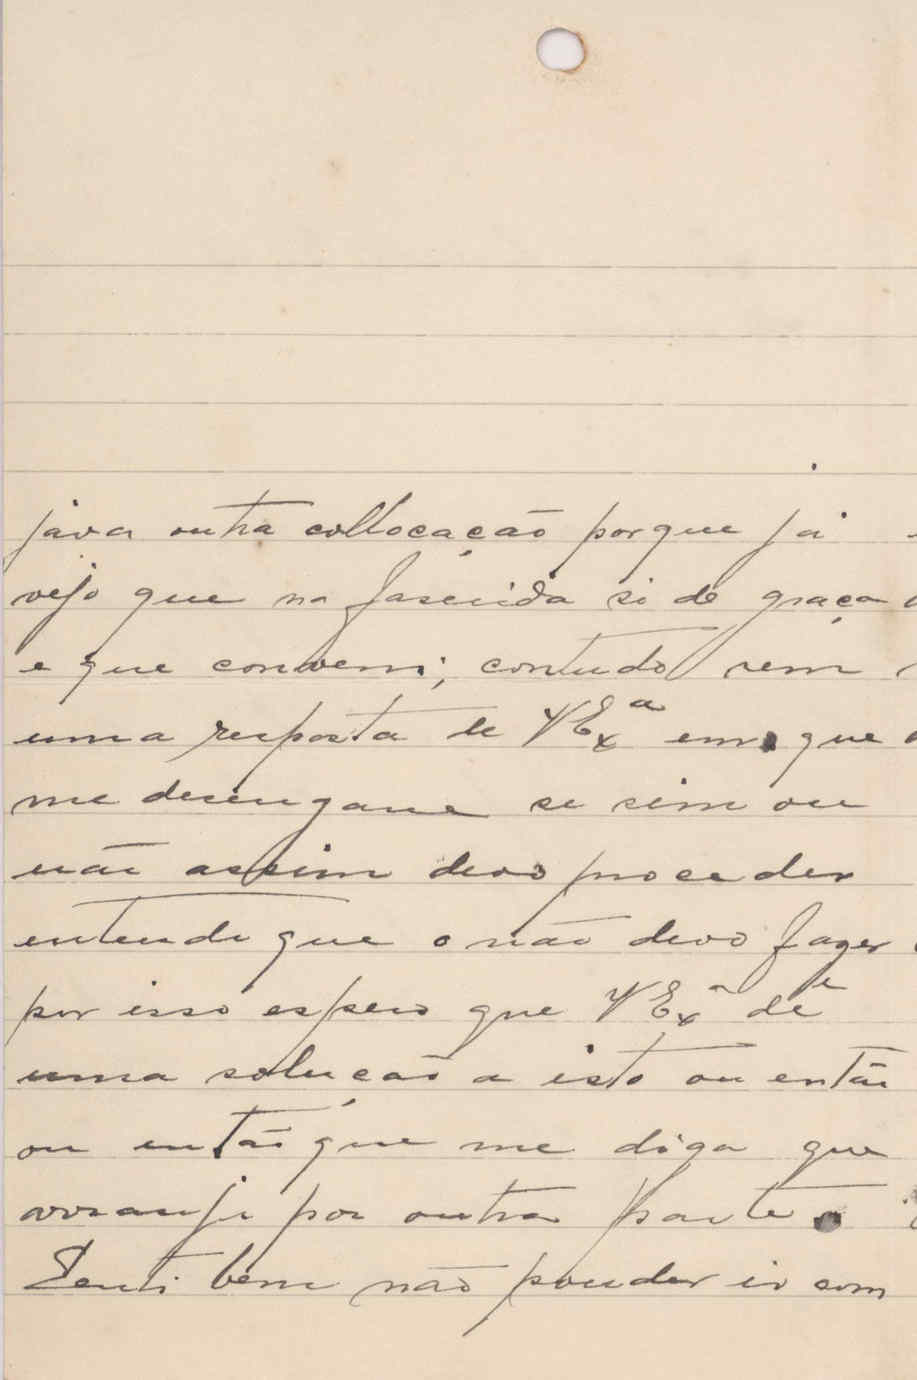 java outra collocação porque já
vejo que na fasenda si dê graça
e que convem; contudo sem
uma resposta de VExª em que
me desengane se sim ou
não assim devo proceder
entendi que o não devo fazer
por isso espero que VExª dê
uma solução a isto ou então
ou então que me diga que
arranje por outra parte.
Senti bem não pouder ir com